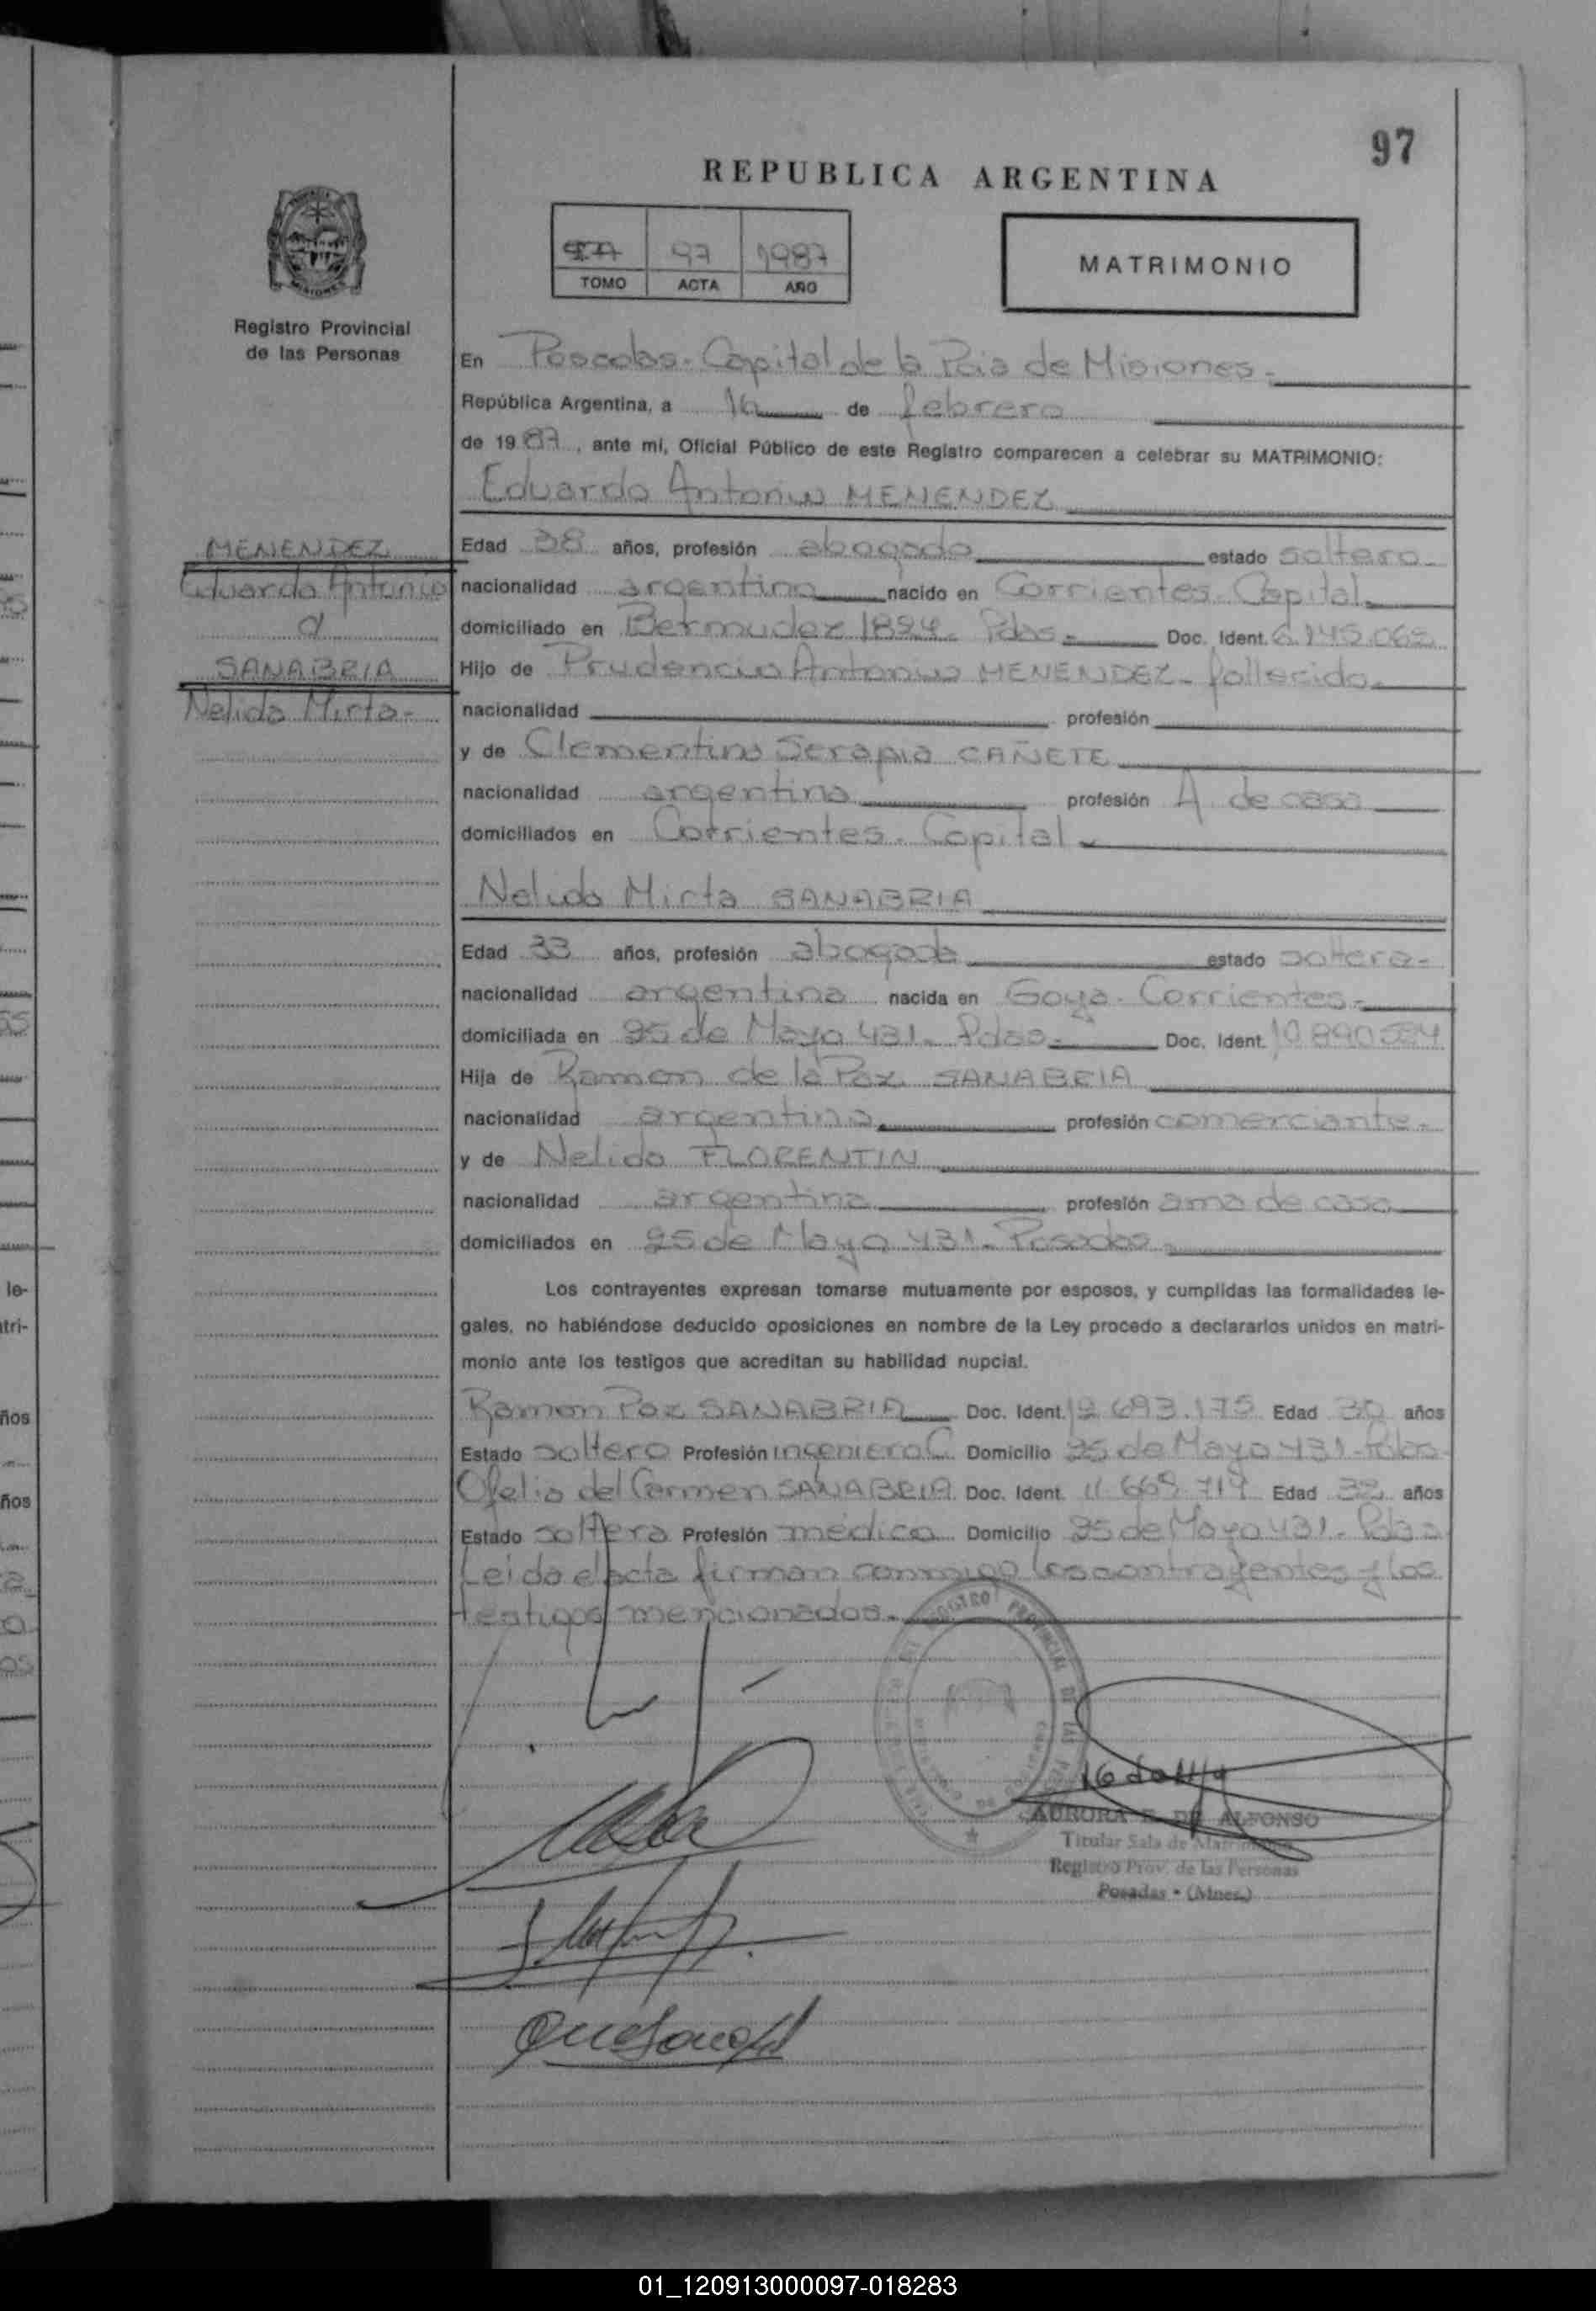 97
REPUBLICA ARGENTINA
97 1987
TOMO ACTA AÑO
MATRIMONIO
Registro Provincial
de las Personas
En Posadas - Capital de la Pcia de Misiones -
República Argentina, a de febrero
de 1987, ante mí, Oficial Público de este Registro comparecen a celebrar su MATRIMONIO:
Eduardo Antonio MENENDEZ
MENENDEZ
Eduardo Antonio
SANABRIA
Nelida Mirta -
Edad 38 años, profesión abogado estado soltero -
nacionalidad argentina nacido en Corrientes - Capital
domiciliado en Bermudez 1894 - Pdas - Doc. Ident. 6.145.065
Hijo de Prudencio Antonio MENENDEZ - fallecido
nacionalidad profesión
y de Clementina Serapia CAÑETE
nacionalidad argentina profesión A. de casa
domiciliados en Corrientes - Capital -
Nelida Mirta SANABRIA
Edad 33 años, profesión abogada estado soltera -
nacionalidad argentina nacida en Goya - Corrientes -
domiciliada en 25 de Mayo 431 - Pdas - Doc. Ident. 10.890.584
Hija de Ramon de la Paz SANABRIA
nacionalidad argentina profesión comerciante -
y de Nelida FLORENTIN
nacionalidad argentina profesión ama de casa
domiciliados en 25 de Mayo 431 - Posadas -
Los contrayentes expresan tomarse mutuamente por esposos, y cumplidas las formalidades le-
gales, no habiéndose deducido oposiciones en nombre de la Ley procedo a declararlos unidos en matri-
monio ante los testigos que acreditan su habilidad nupcial.
Ramon Paz SANABRIA Doc. Ident. 12.693.175 Edad 30 años
Estado soltero Profesión ingeniero C. Domicilio 25 de Mayo 431 - Pdas -
Ofelia del Carmen SANABRIA Doc. Ident. 11.669.719 Edad 32 años
Estado soltera Profesión médica Domicilio 25 de Mayo 431 - Pdas -
Leida el acta firman conmigo los contrayentes y los
testigos mencionados -
AURORA E. DE ALFONSO
Titular Sala de Matrimonios
Registro Prov. de las Personas
Posadas - (Mnes.)
01_120913000097-018283